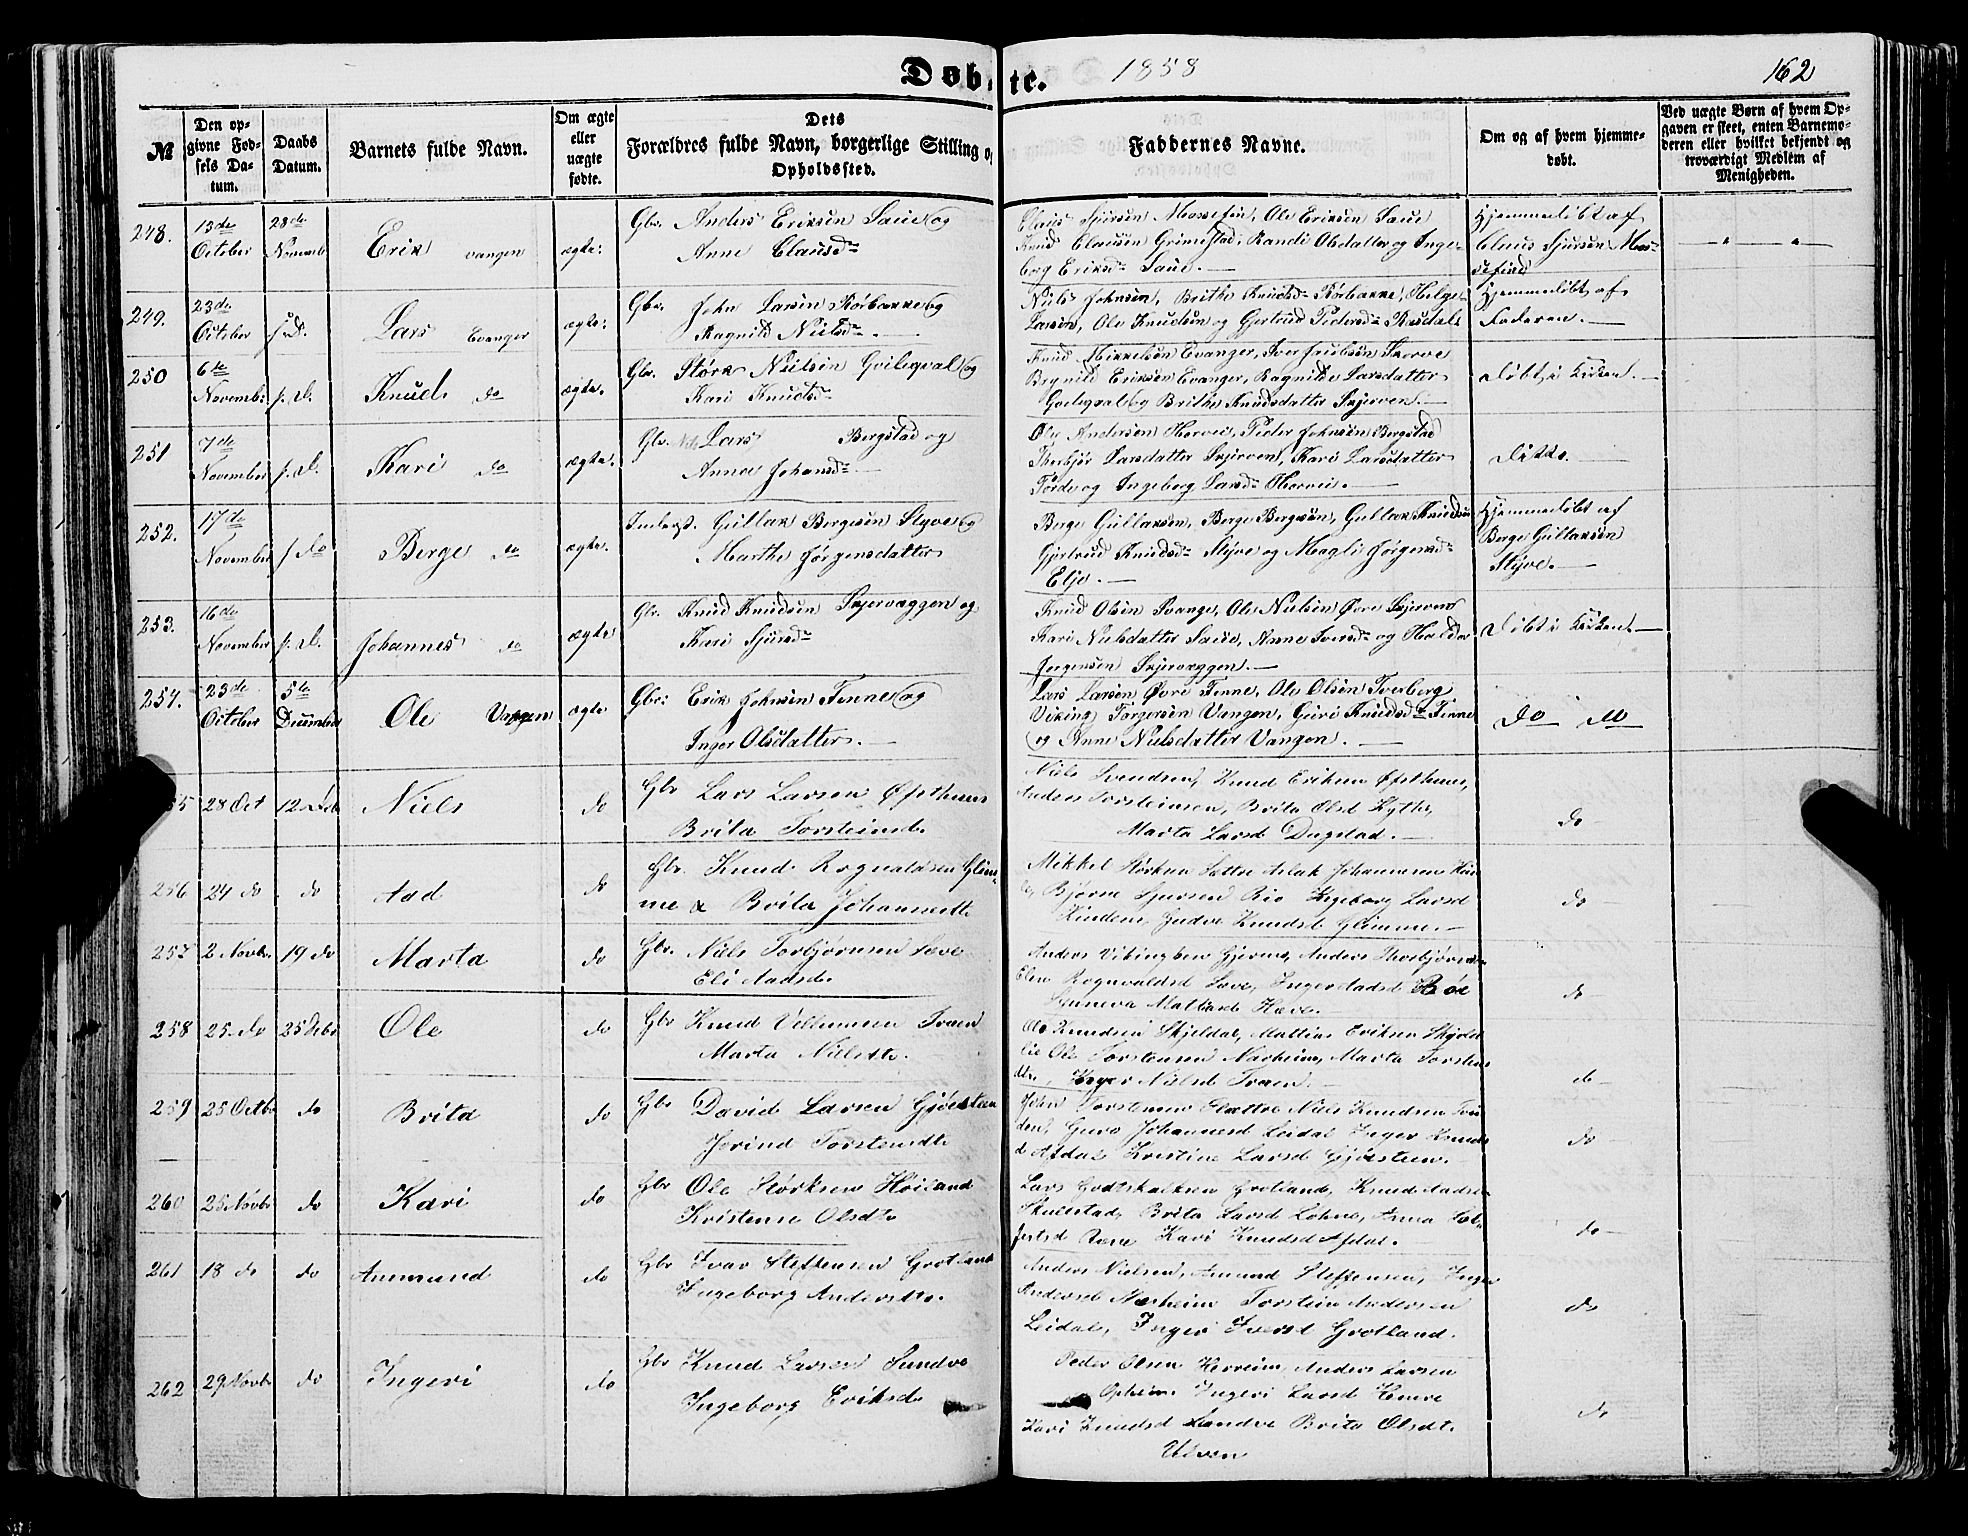 Døbte. 1858 162
№
Den opgivne Fødsels Datum.
Daabs Datum.
Barnets fulde Navn.
Om ægte eller uægte fødte.
Dets Forældres fulde Navn, borgerlige Stilling og Opholdssted.
Faddernes Navne.
Om og af hvem hjemmedøbt.
Ved uægte Børn af hvem Opgaven er skeet, enten Barnemoderen eller hvilket bekjendt og troværdigt Medlem af Menigheden.
248. 13de October 28de Novemb Erik vangen ægte:
Gbr. Anders Eriksen Saue og
Anne Clausd
Claus Sjursen Mossefin, Ole Eriksen Saue
Knud Clausen Grimestad, Randi Olsdatter og Inge-
borg Eriksd Saue.
Hjemmedøbt af
Claus Sjursen Mos-
sefind
249. 23de October Lars Evanger ægte:
Gbr. John Larsen Rørbakke og
Ragnild Nielsd
Niels Johnsen, Brithe Knudsd Rørbakke, Helge
Larsen, Ole Knudsen og Gjertrud Pedersd Rasdal
Hjemmedøbt af
Faderen.
250 6te November s. D. Knud do ægte.
Gbr. Størk Nielsen Gvileqval og
Kari Knudsd
Knud Mikkelsen Evanger, Iver Jacobsen Skorve
Brynild Eriksen Evanger, Ragnilde Larsdatter
og Brithe Knudsdatter Skjerven.
døbt i Kirken.
251 7de November s. D. Kari do ægte.
Gbr. Niels Lars Bergstad og
Anna Johansd
Ole Andersen Horvei, Peder Johnsen Bergstad
Thorbjør Larsdatter Skjerven, Kari Larsdatter
Førde og Ingeborg Larsd Horvei.
Ditto.
252. 17de November s. do Berge do ægte.
Inderst. Gullak Bergesen Styve og
Marthe Jørgensdatter
Berge Gullaksen, Berge Bergesen, Gullak Knudsen
Gjertrud Knudsd Styve og Magli Jørgensd
Elje.
Hjemmedøbt af
Berge Gullaksen
Styve.
253. 16de November s. D. Johannes do ægte
Gbr. Knud Knudsen Skjervæggen og
Kari Sjursd
Knud Olsen Evange, Ole Nielsen Øvre Skjerven
Kari Nielsdatter Saue, Anne Iversd og Haldor
Jørgensen Skjervæggen.
Døbt i Kirken.
254. 23de October 5te December Ole Vangen ægte
Gbr: Erik Johnsen Finne og
Inger Olsdatter.
Lars Larsen Øvre Finne, Ole Olsen Tverberg
Viking Torgersen Vangen, Guri Knudsd Finne
og Anne Nielsdatter Vangen.
do do
55 28 Oct 12 Deb Niels do
Gbr Lars Larsen Øfsthuus
Brita Torsteinsd.
Niels Svendsen, Knud Eriksen Øfsthuus,
Anders Torsteinsen, Brita Olsd Kytte,
Marta Larsd Dugstad.
do
256 24 do do Aad do
Gbr. Knud Rognaldsen Glim-
me & Brita Johannesdt
Mikkel Størksen Sættre Aslak Johannesen Kin
de, Bjørne Sjursen Rio Ingeborg Larsd
Kindene Gudve Knudsd Glimme.
do
257 2 Novbr. 19 do Marta do
Gbr. Niels Torbjørnsen Sæve
Eli Aadsd.
Anders Vikingsen Gjerme, Anders Thorbjørnsen
Elen Rognvaldsd Sæve, Inger Aadsd Bøe
Synneva Mattisd Hæve.
do
258 25. do 25 Debr Ole do
Gbr Knud Villumsen Traen
Marta Nielsdtr.
Ole Knudsen Skjeldal, Mattias Eriksen Skjeld
lie Ole Torstensen Næsheim, Marta Torstens
dtr. Inger Nielsd Traen.
do
259 25 Octbr do Brita do
Gbr David Larsen Gjøestein
Jorind Torstensdt
John Torstensen Slættre Niels Knudsen Tvi
den, Guro Johannesd Leidal Inger Knuds
d Afdal Kristine Larsd Gjøestein.
do
260 25 Novbr do Kari do
Gbr Ole Størksen Høiland
Kristense Olsdt
Lars Godtskalksen Grotland, Knud Aadsen
Skulestad, Brita Larsd Lohne, Anna Sæ-
Kari Knudsd Afdal.
do
261 18 do do Ammund do
Gbr Ivar Steffensen Grotland
Ingeborg Andersdtr.
Anders Nielsen, Amund Steffensen, Inger
Andersd Næsheim Torstein Andersen
Leidal, Inger Iversd Grotland.
do
262 29 Novbr do Ingeri do
Gbr Knud Larsen Sundve
Ingeborg Eriksd
Peder Olsen Herreim, Anders Larsen
Opheim Ingeri Larsd
Kari Knudsd Sundve Brita Olsdt.
Ulven
do